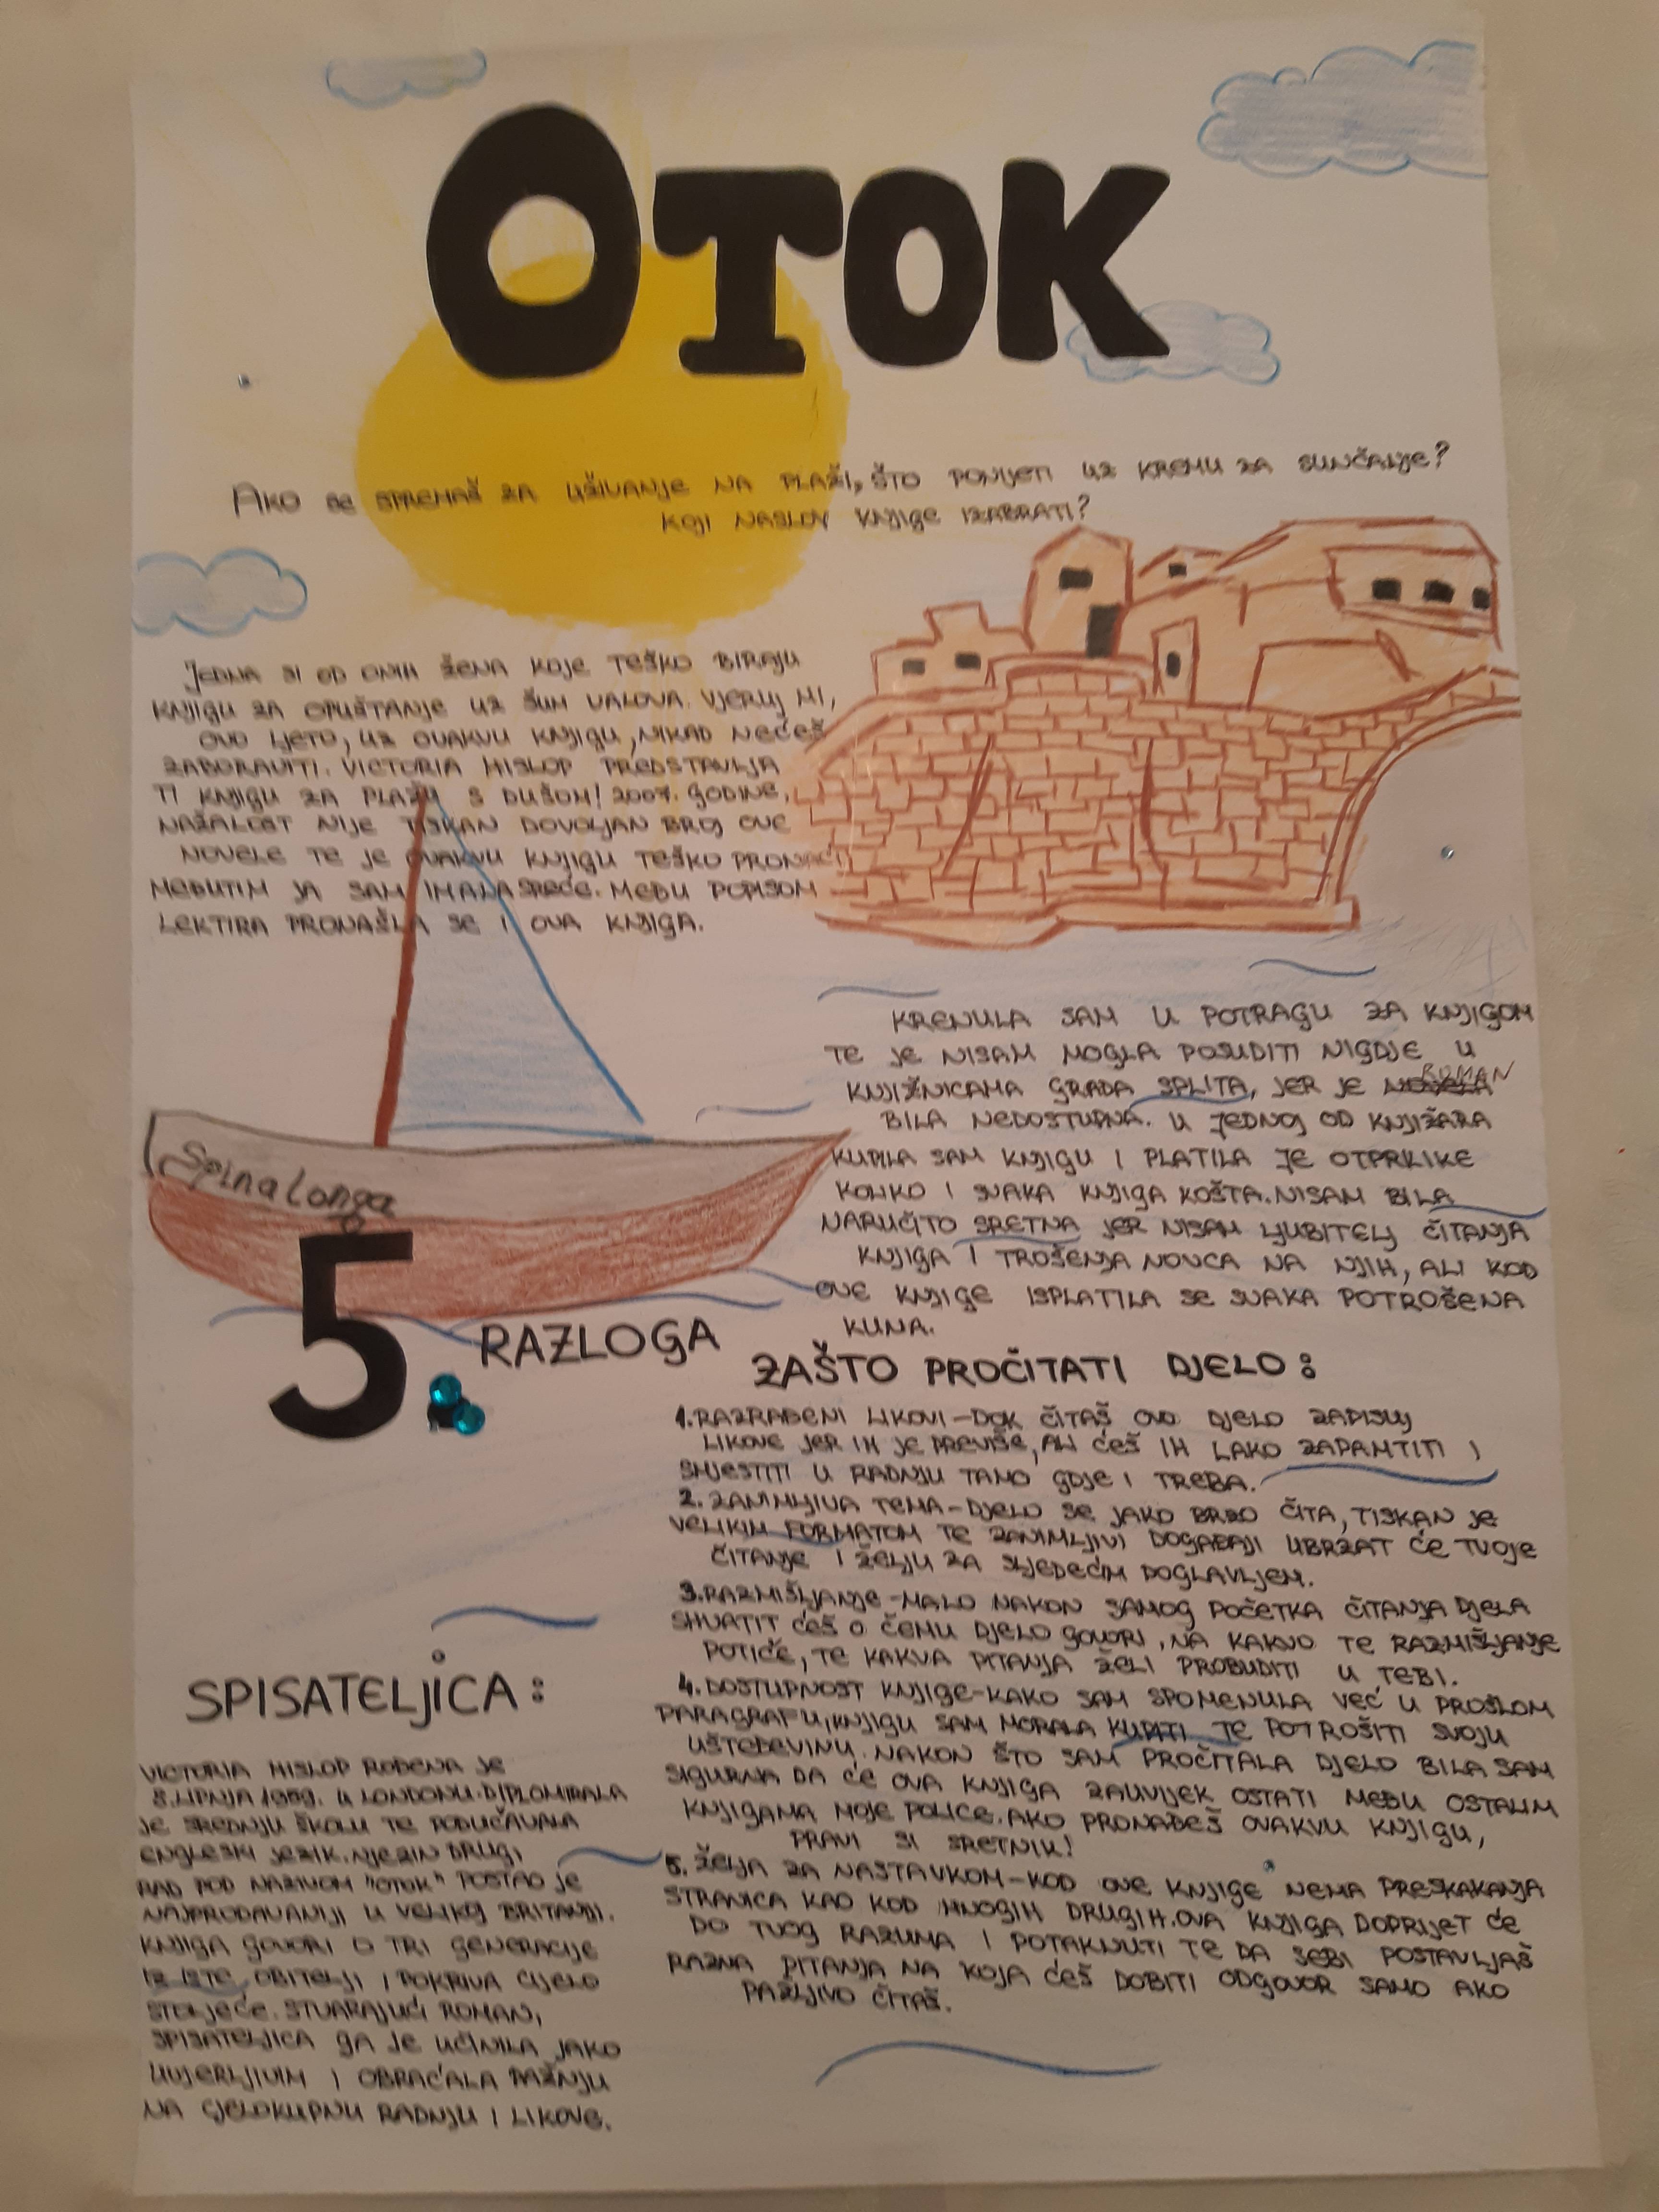 OTOK
AKO SE SPREMAŠ ZA UŽIVANJE NA PLAŽI, ŠTO PONIJETI UZ KREMU ZA SUNČANJE?
KOJI NASLOV KNJIGE IZABRATI?
JEDNA SI OD ONIH ŽENA KOJE TEŠKO BIRAJU
KNJIGU ZA OPUŠTANJE UZ ŠUM VALOVA. VJERUJ MI,
OVO LJETO, UZ OVAKVU KNJIGU, NIKAD NEĆEŠ
ZABORAVITI. VICTORIA HISLOP PREDSTAVLJA
TI KNJIGU ZA PLAŽU S DUŠOM! 2007. GODINE,
NAŽALOST NIJE TISKAN DOVOLJAN BROJ OVE
NOVELE TE JE OVAKVU KNJIGU TEŠKO PRONAĆI
MEĐUTIM JA SAM IMALA SREĆE. MEĐU POPISOM
LEKTIRA PRONAŠLA SE I OVA KNJIGA.
KRENULA SAM U POTRAGU ZA KNJIGOM
TE JE NISAM MOGLA POSUDITI NIGDJE U
KNJIŽNICAMA GRADA SPLITA, JER JE ROMAN
BILA NEDOSTUPNA. U JEDNOJ OD KNJIŽARA
KUPILA SAM KNJIGU I PLATILA JE OTPRILIKE
KOLIKO I SVAKA KNJIGA KOŠTA. NISAM BILA
NARUČITO SRETNA JER NISAM LJUBITELJ ČITANJA
KNJIGA I TROŠENJA NOVCA NA NJIH, ALI KOD
OVE KNJIGE ISPLATILA SE SVAKA POTROŠENA
KUNA.
Spinalonga
5. RAZLOGA
ZAŠTO PROČITATI DJELO:
1. RAZRAĐENI LIKOVI-DOK ČITAŠ OVO DJELO ZAPISUJ
LIKOVE JER IH JE PREVIŠE, ALI ĆEŠ IH LAKO ZAPAMTITI I
SMJESTITI U RADNJU TAMO GDJE I TREBA.
2. ZANIMLJIVA TEMA-DJELO SE JAKO BRZO ČITA, TISKAN JE
VELIKIM FORMATOM TE ZANIMLJIVI DOGAĐAJI UBRZAT ĆE TVOJE
ČITANJE I ŽELJU ZA SLJEDEĆIM POGLAVLJEM.
3. RAZMIŠLJANJE-MALO NAKON SAMOG POČETKA ČITANJA DJELA
SHVATIT ĆEŠ O ČEMU DJELO GOVORI, NA KAKVO TE RAZMIŠLJANJE
POTIČE, TE KAKVA PITANJA ŽELI PROBUDITI U TEBI.
4. DOSTUPNOST KNJIGE-KAKO SAM SPOMENULA VEĆ U PROŠLOM
PARAGRAFU, KNJIGU SAM MORALA KUPITI TE POTROŠITI SVOJU
UŠTEĐEVINU. NAKON ŠTO SAM PROČITALA DJELO BILA SAM
SIGURNA DA ĆE OVA KNJIGA ZAUVIJEK OSTATI MEĐU OSTALIM
KNJIGAMA MOJE POLICE. AKO PRONAĐEŠ OVAKVU KNJIGU,
PRAVI SI SRETNIK!
5. ŽELJA ZA NASTAVKOM-KOD OVE KNJIGE NEMA PRESKAKANJA
STRANICA KAO KOD MNOGIH DRUGIH. OVA KNJIGA DOPRIJET ĆE
DO TVOG RAZUMA I POTAKNUTI TE DA SEBI POSTAVLJAŠ
RAZNA PITANJA NA KOJA ĆEŠ DOBITI ODGOVOR SAMO AKO
PAŽLJIVO ČITAŠ.
SPISATELJICA:
VICTORIA HISLOP ROĐENA JE
8. LIPNJA 1959. U LONDONU. DIPLOMIRALA
JE SREDNJU ŠKOLU TE PODUČAVALA
ENGLESKI JEZIK. NJEZIN DRUGI
RAD POD NAZIVOM "OTOK" POSTAO JE
NAJPRODAVANIJI U VELIKOJ BRITANIJI.
KNJIGA GOVORI O TRI GENERACIJE
IZ ISTE OBITELJI I POKRIVA CIJELO
STOLJEĆE. STVARAJUĆI ROMAN,
SPISATELJICA GA JE UČINILA JAKO
UVJERLJIVIM I OBRAĆALA PAŽNJU
NA CJELOKUPNU RADNJU I LIKOVE.